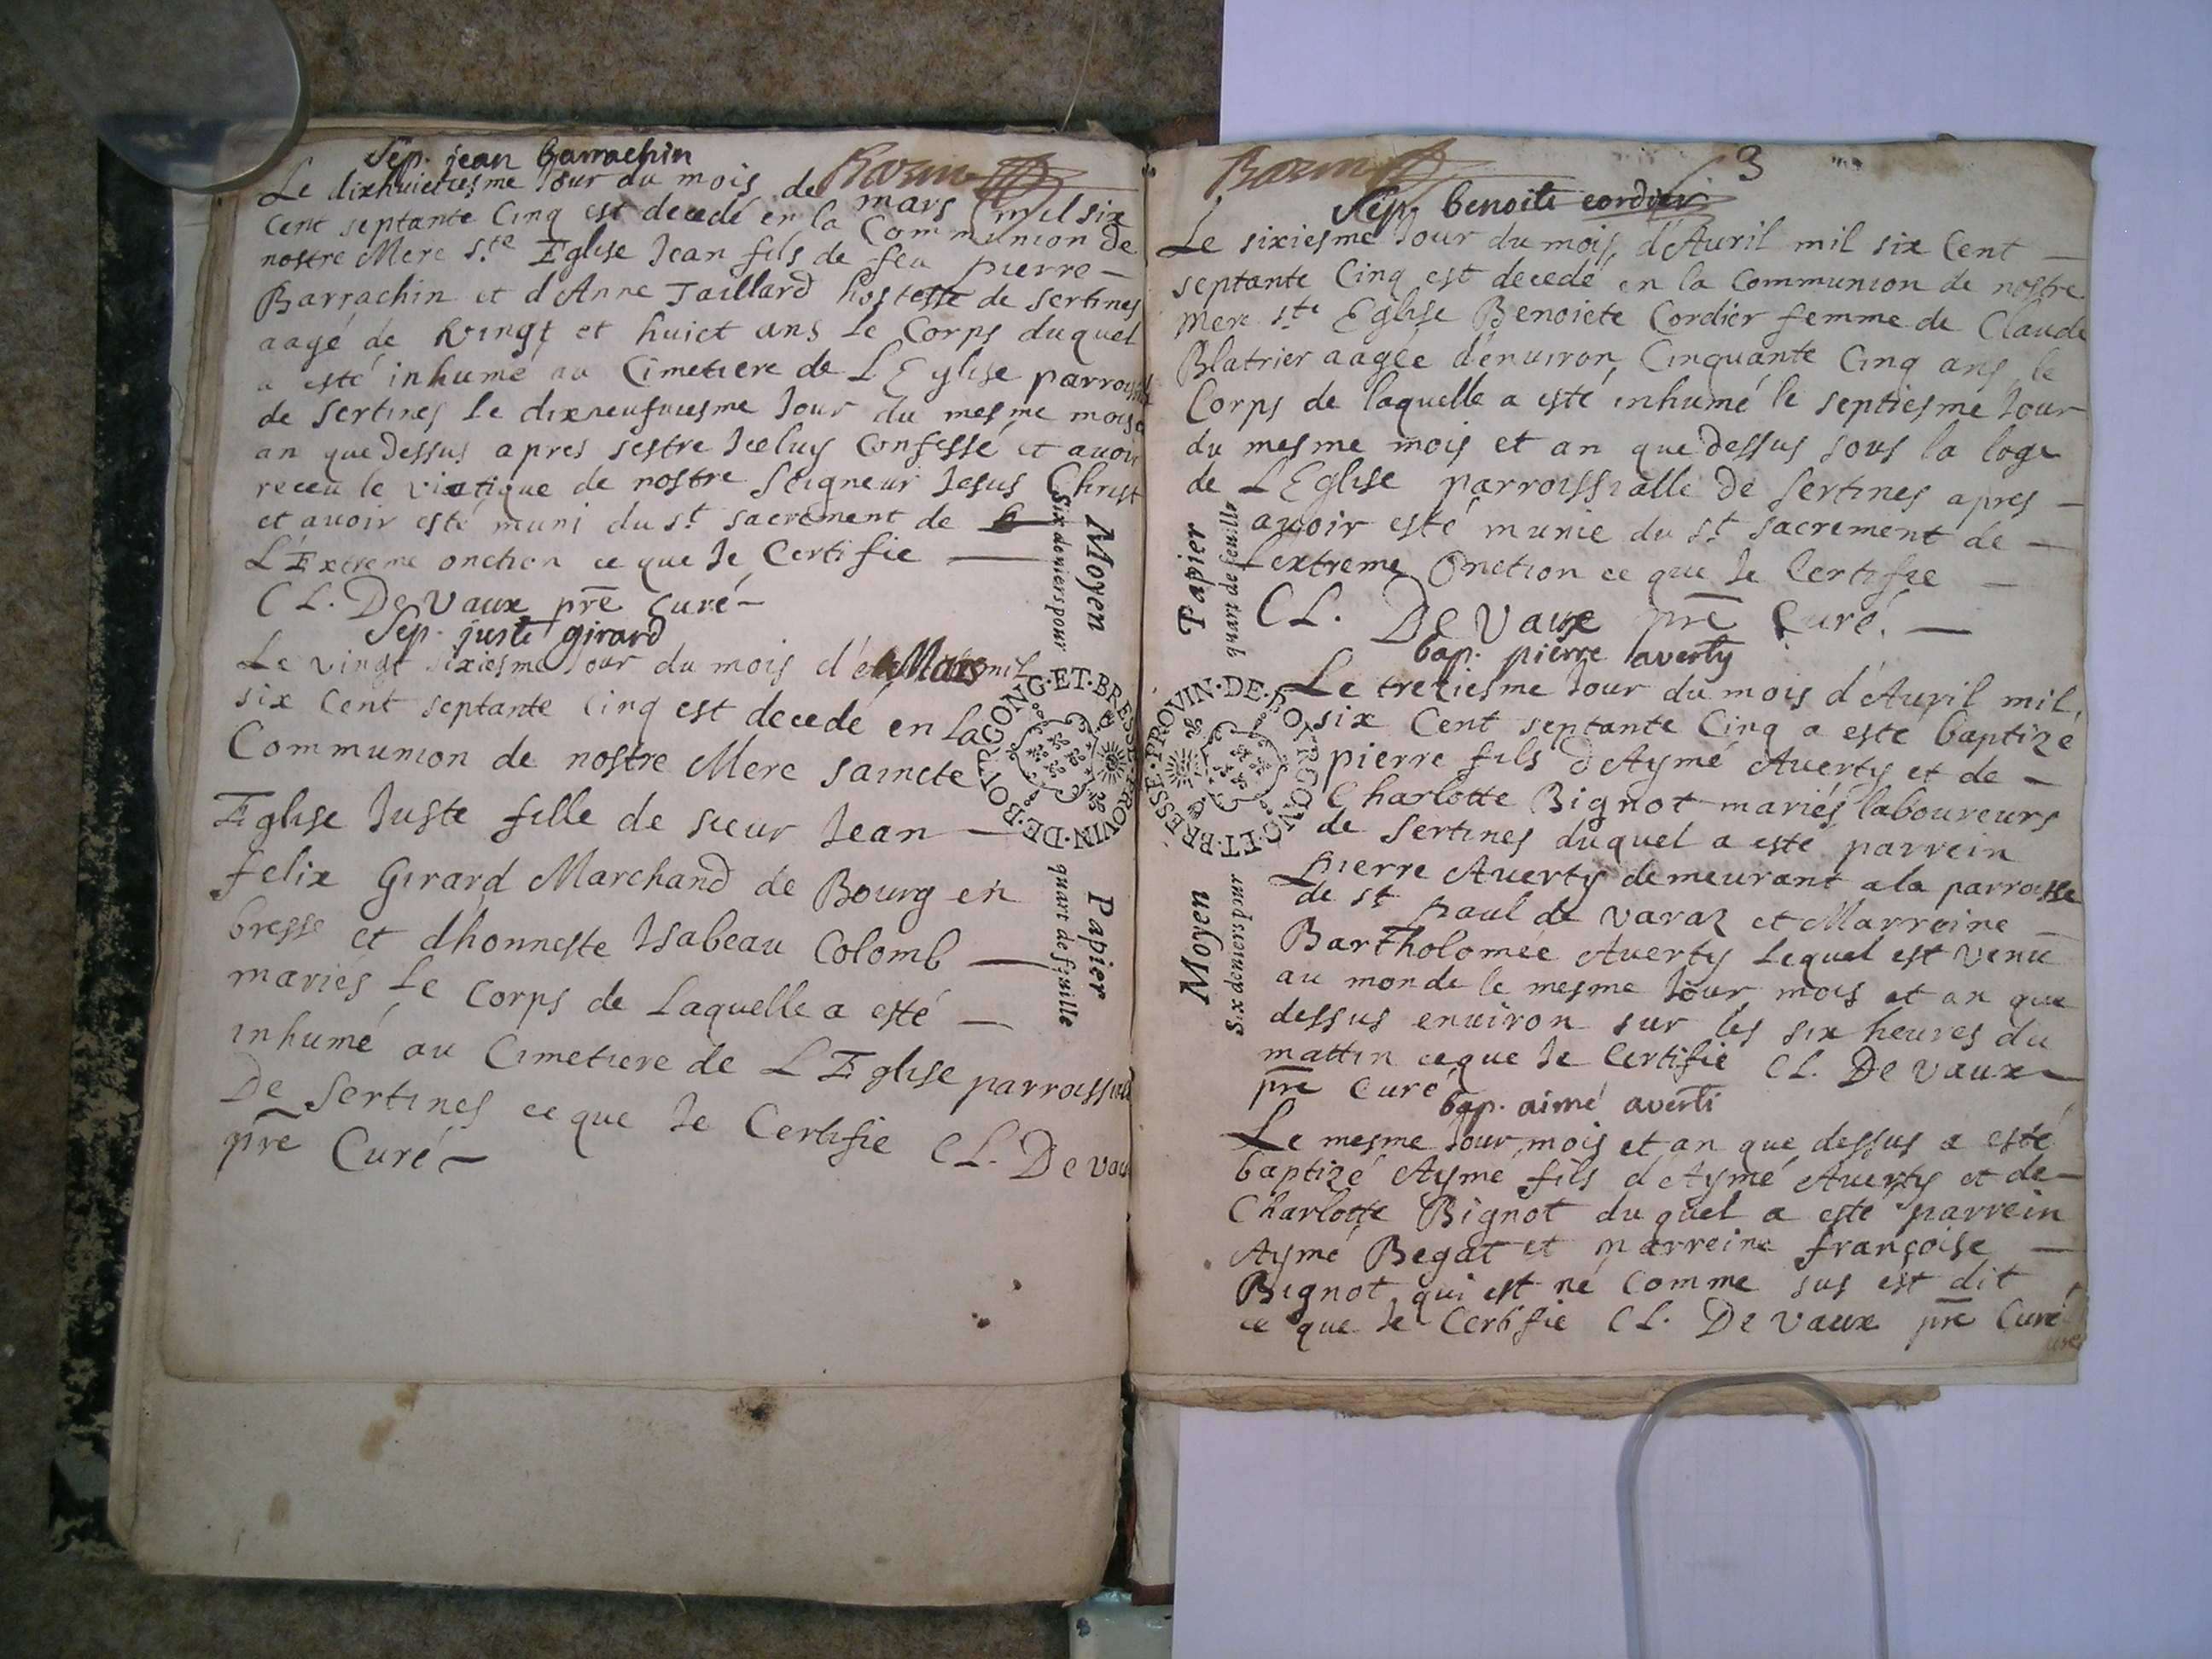 Sep. jean barrachin
Le dixhuictiesme Jour du mois de mars mil six
Cent septante Cinq est decedé en la Communion de
nostre Mere Ste Eglise Jean fils de feu pierre
Barrachin et d'Anne Taillard hostesse de Sertines
aagé de Vingt et huict ans le Corps duquel
a esté inhumé au Cimetiere de L'Eglise
de Sertines le dixneufuiesme Jour du mesme mois
an que dessus apres sestre Iceluy Confessé et avoir
receu le viatique de nostre Seigneur Jesus Christ
et avoir esté muni du st sacrement de
L'Extreme onction ce que Je Certifie —
CL. De Vaux pre Curé —
Sep. juste girard
Le vingt sixiesme Jour du mois de Mars mil
six Cent septante Cinq est decedé en La
Communion de nostre Mere Saincte
Eglise Juste fille de sieur Jean —
felix Girard Marchand de Bourg en
bresse et dhonneste Isabeau Colomb —
mariés Le Corps de Laquelle a esté —
inhumé au Cimetiere de L'Eglise
De Sertines ce que Je Certifie CL. De Vaux
pre Curé —
Moyen Papier
Six deniers pour quart de feuille
BOURGONG·ET·BRESSE·PROVIN·DE·
3
Sep. benoite cordier
Le sixiesme Jour du mois d'Auril mil six Cent —
septante Cinq est decedé en la Communion de nostre
Mere ste Eglise Benoiete Cordier femme de Claude
Blatrier aagée d'enuiron Cinquante Cinq ans le
Corps de laquelle a esté inhumé le septiesme Jour
du mesme mois et an que dessus sous la loge
de L'Eglise parroissialle de Sertines apres —
avoir esté munie du st sacrement de —
Lextreme Onction ce que Je Certifie —
CL. De Vaux pre Curé. —
bap. pierre averty
Le treziesme Jour du mois d'Auril mil
six Cent septante Cinq a esté baptizé
pierre fils d'Aymé Auerty et de —
Charlotte Bignot mariés laboureurs
de Sertines duquel a esté parrein
pierre Auerty demeurant a la parroisse
de st paul de varaz et Marreine —
Bartholomée Auerty Lequel est venu
au monde le mesme Jour mois et an que
dessus enuiron sur les six heures du
mattin ce que Je Certifie CL. De Vaux —
pre Curé
bap. aimé averti
Le mesme Jour mois et an que dessus a esté
baptizé Aymé fils d'Aymé Auerty et de —
Charlotte Bignot duquel a esté parrein
Aymé Begat et marreine françoise —
Bignot qui est né Comme sus est dit
ce que Je Certifie CL. De Vaux pre Curé
Moyen Papier
Six deniers pour quart de feuille
PROVIN·DE·BOURGONG·ET·BRESSE